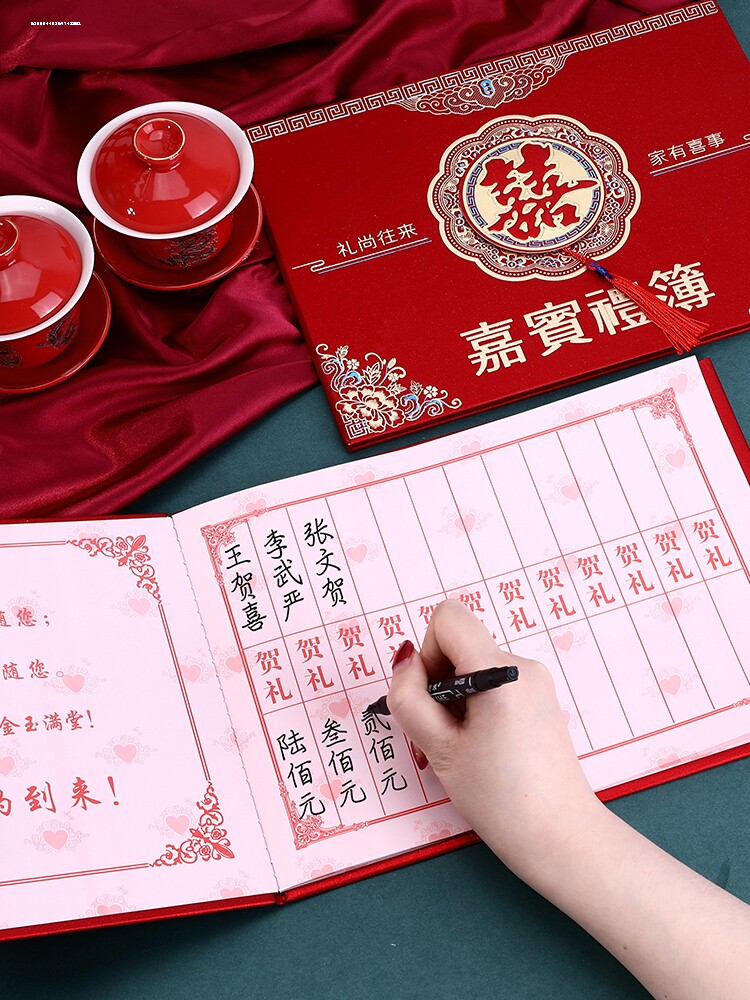 礼尚往来
囍
家有喜事
嘉賓禮簿
王贺喜
李武严
张文贺
贺礼
贺礼
贺礼
贺礼
贺礼
贺礼
贺礼
贺礼
贺礼
贺礼
贺礼
贺礼
陆佰元
叁佰元
贰佰元
随您;
随您。
金玉满堂!
到来!